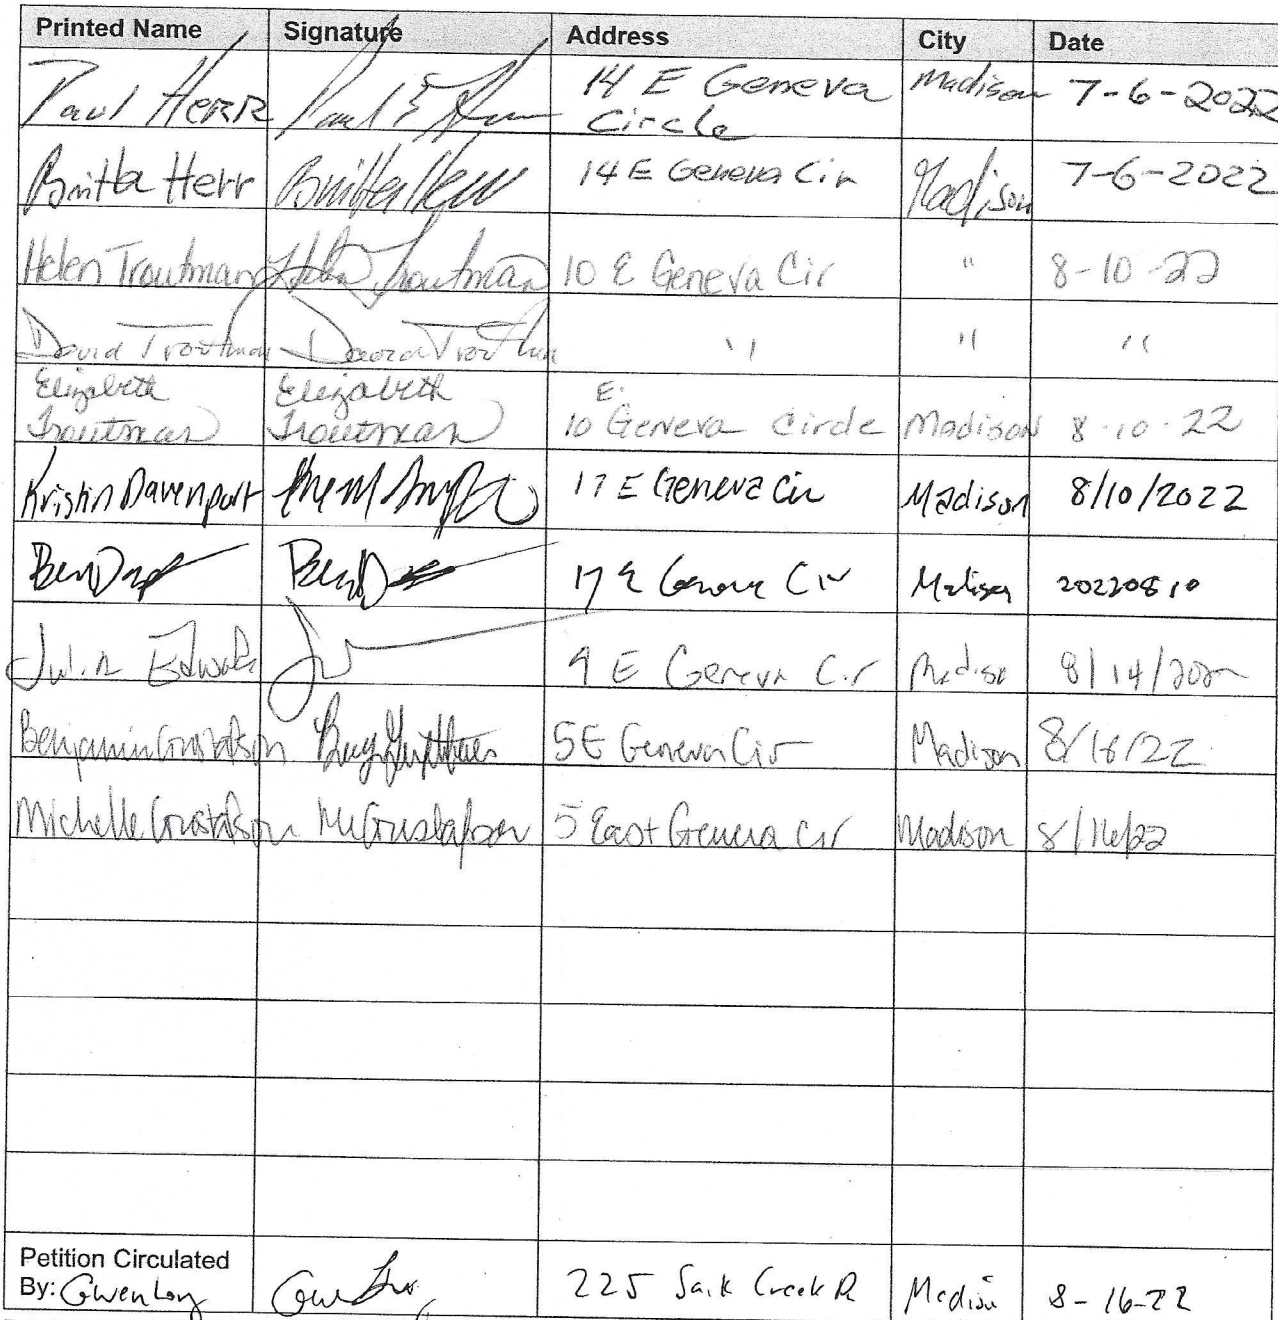 Printed Name Signature Address City Date
Paul Herr Paul E Herr 14 E Geneva Circle Madison 7-6-2022
Britta Herr Britta Herr 14 E Geneva Cir Madison 7-6-2022
Helen Troutman Helen Troutman 10 E Geneva Cir " 8-10-22
David Troutman David Troutman " " "
Elizabeth Troutman Elizabeth Troutman 10 E. Geneva Circle Madison 8-10-22
Kristin Davenport 17 E Geneva Cir Madison 8/10/2022
Ben Ben 17 E Geneva Cir Madison 20220810
Edwards 9 E Geneva Cir Madison 8/14/2022
Benjamin Gustafson 5 E Geneva Cir Madison 8/16/22
Michelle Gustafson M Gustafson 5 East Geneva Cir Madison 8/16/22
Petition Circulated
By: Gwen 225 Creek Madison 8-16-22